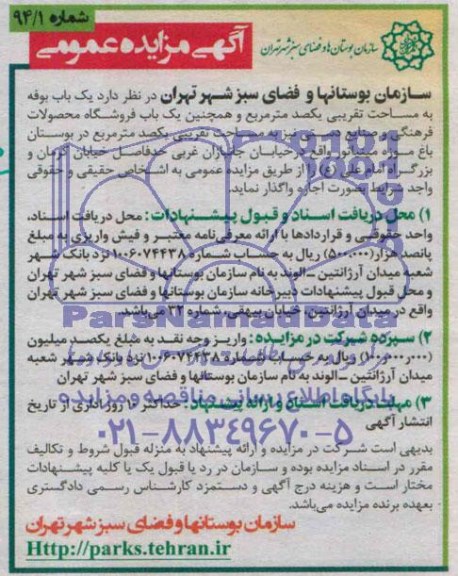 شماره ۹۴/۱
آگهی مزایده عمومی
سازمان بوستان‌ها و فضای سبز شهر تهران
سازمان بوستانها و فضای سبز شهر تهران در نظر دارد یک باب بوفه
به مساحت تقریبی یکصد مترمربع و همچنین یک باب فروشگاه محصولات
فرهنگی و صنایع دستی نیز به مساحت تقریبی یکصد مترمربع در بوستان
باغ موزه واقع در خیابان جانبازان غربی حدفاصل خیابان کرمان و
بزرگراه امام علی (ع) را از طریق مزایده عمومی به اشخاص حقیقی و حقوقی
واجد شرایط بصورت اجاره واگذار نماید.
۱) محل دریافت اسناد و قبول پیشنهادات: محل دریافت اسناد،
واحد حقوقی و قراردادها با ارائه معرفی‌نامه معتبر و فیش واریزی به مبلغ
پانصد هزار (۵۰۰،۰۰۰) ریال به حساب شماره ۱۰۰۶۰۷۴۴۳۸ نزد بانک شهر
شعبه میدان آرژانتین ـ الوند به نام سازمان بوستانها و فضای سبز شهر تهران
و محل قبول پیشنهادات دبیرخانه سازمان بوستانها و فضای سبز شهر تهران
واقع در میدان آرژانتین، خیابان بیهقی، شماره ۳۲ می‌باشد.
ParsNamadData
۲) سپرده شرکت در مزایده: واریز وجه نقد به مبلغ یکصد میلیون
(۱۰۰،۰۰۰،۰۰۰) ریال به حساب شماره ۱۰۰۶۰۷۴۴۳۸ نزد بانک شهر شعبه
میدان آرژانتین ـ الوند به نام سازمان بوستانها و فضای سبز شهر تهران
پایگاه اطلاع رسانی مناقصه و مزایده
۳) مهلت دریافت اسناد و ارائه پیشنهاد: حداکثر ۱۰ روز اداری از تاریخ
انتشار آگهی
۰۲۱-۸۸۳۴۹۶۷۰-۵
بدیهی است شرکت در مزایده و ارائه پیشنهاد به منزله قبول شروط و تکالیف
مقرر در اسناد مزایده بوده و سازمان در رد یا قبول یک یا کلیه پیشنهادات
مختار است و هزینه درج آگهی و دستمزد کارشناس رسمی دادگستری
بعهده برنده مزایده می‌باشد.
سازمان بوستانها و فضای سبز شهر تهران
Http://parks.tehran.ir